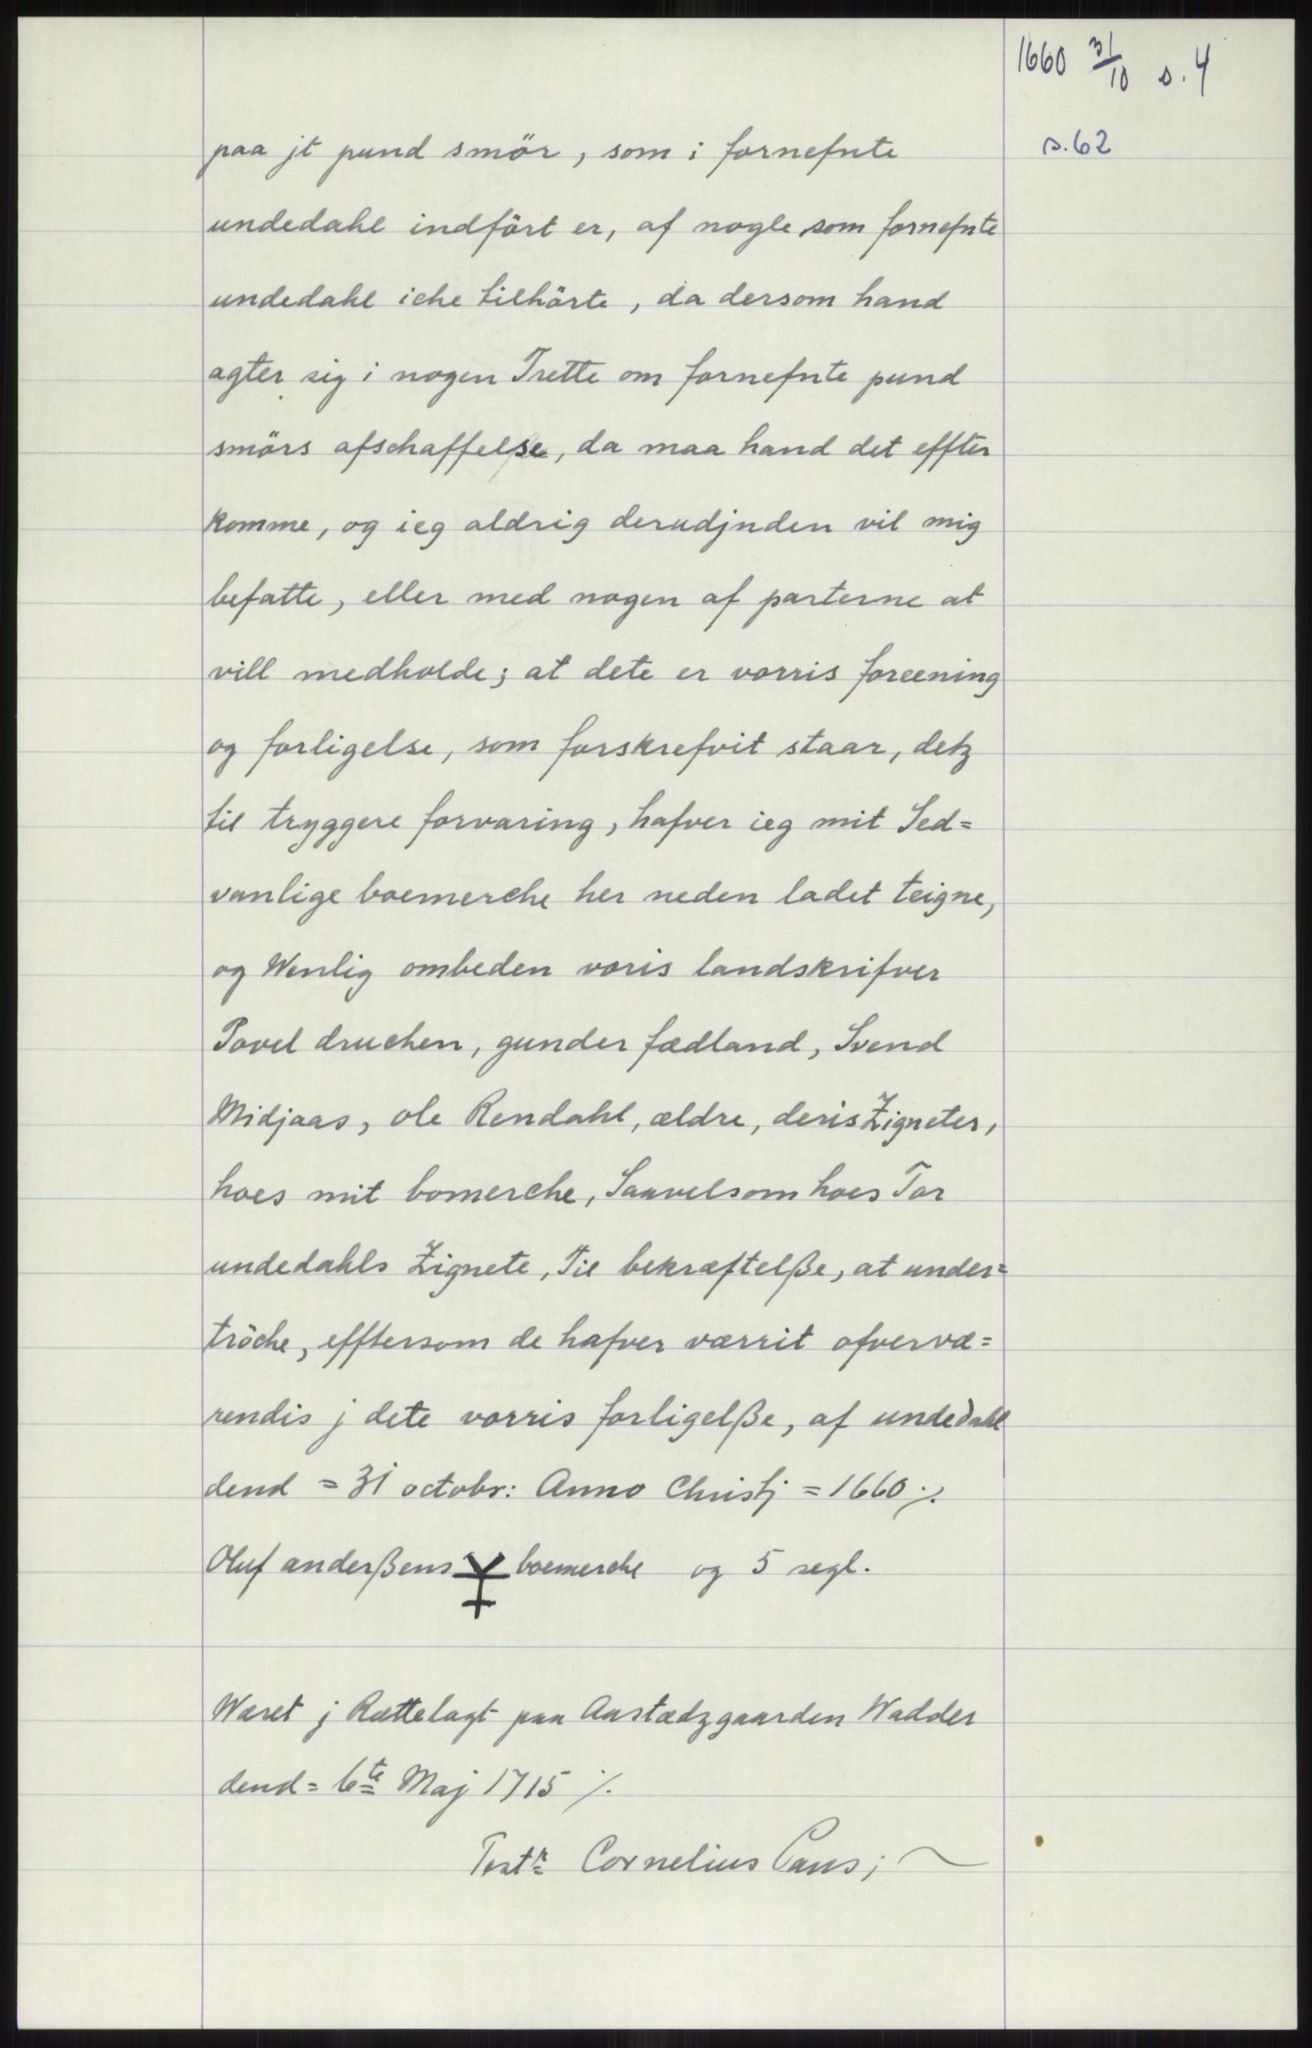 1660 31/10 s. 4
s. 62
paa jt pund smör, som i fornefnte
undedahl indfört er, af nogle som fornefnte
undedahl iche tilhörte, da dersom hand
agter sig i nogen Trette om fornefnte pund
smörs afschaffelse, da maa hand det effter
komme, og ieg aldrig derudjnden vil mig
befatte, eller med nogen af parterne at
vill medholde; at dete er vorris foreening
og forligelse, som forskrefvit staar, detz
til tryggere forvaring, hafver ieg mit Sed=
vanlige boemerche her neden ladet teigne,
og Wenlig ombeden voris landskrifver
Povel druchen, gunder fædland, Svend
Midjaas, ole Rendahl, ældre, deris Zigneter,
hoes mit bomerche, Saavelsom hoes Tor
undedahls Zignete, Til bekræftelße, at under=
tröche, efftersom de hafver værrit ofvervæ=
rendis j dete vorris forligelße, af undedahl
dend = 31 octobr: Anno Christj = 1660 ⁒
Oluf anderßens boemerche og 5 segl.
Wæret j Rættelagt paa Aastædzgaarden Wadder
dend = 6te Maj 1715 ⁒
Testr: Cornelius Paus;